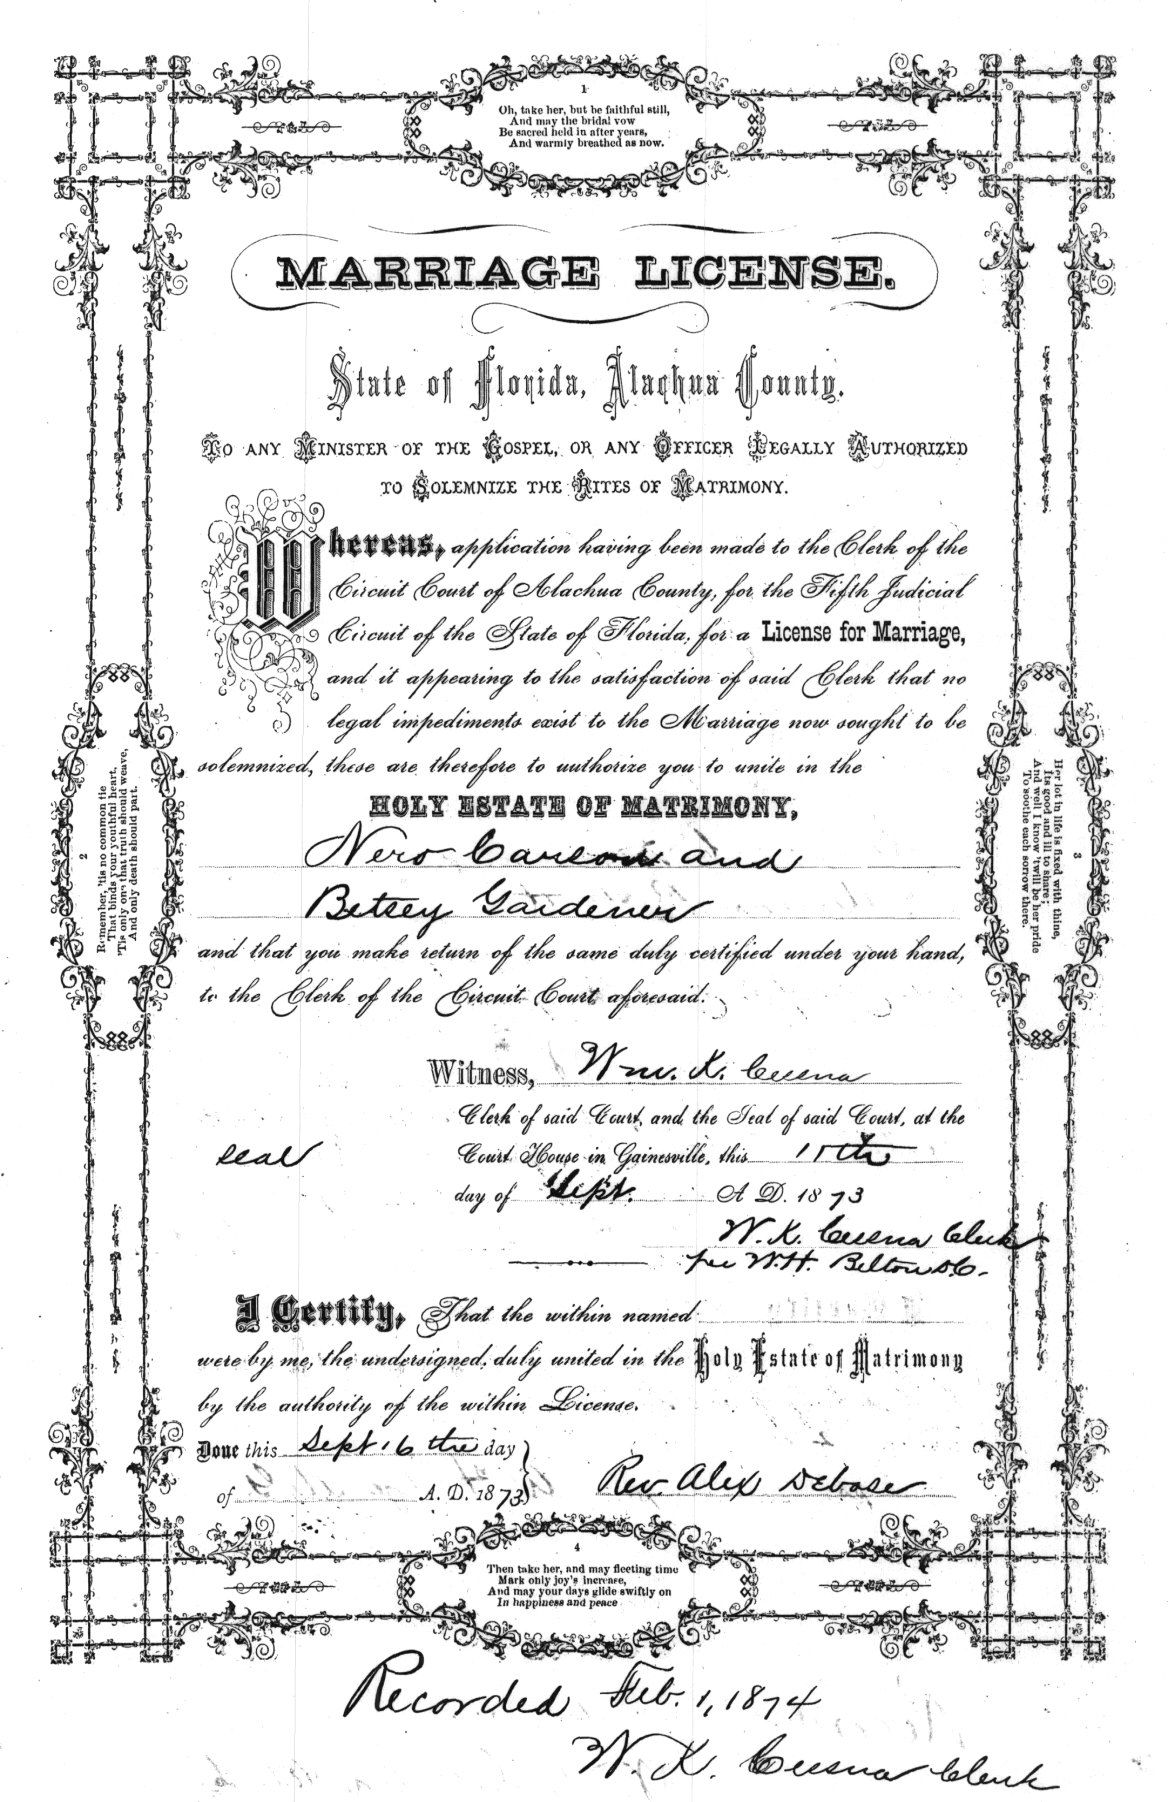 1
Oh, take her, but be faithful still,
And may the bridal vow
Be sacred held in after years,
And warmly breathed as now.
MARRIAGE LICENSE.
State of Florida, Alachua County.
TO ANY MINISTER OF THE GOSPEL, OR ANY OFFICER LEGALLY AUTHORIZED
TO SOLEMNIZE THE RITES OF MATRIMONY.
Whereas, application having been made to the Clerk of the
Circuit Court of Alachua County, for the Fifth Judicial
Circuit of the State of Florida, for a License for Marriage,
and it appearing to the satisfaction of said Clerk that no
legal impediments exist to the Marriage now sought to be
solemnized, these are therefore to authorize you to unite in the
HOLY ESTATE OF MATRIMONY,
Nero Carson and
Betsey Gardener
and that you make return of the same duly certified under your hand,
to the Clerk of the Circuit Court aforesaid.
Witness, Wm. K. Cessna
Clerk of said Court, and the Seal of said Court, at the
seal
Court House in Gainesville, this 15th
day of Sept. A. D. 1873
W. K. Cessna Clerk
per W. H. Belton D.C.
I Certify, That the within named
were by me, the undersigned, duly united in the Holy Estate of Matrimony
by the authority of the within License.
Done this Sept 16 the day
of A. D. 1873
Rev Alex Debose
2
Remember, 'tis no common tie
That binds your youthful heart,
'Tis only one that truth should weave,
And only death should part.
3
Her lot in life is fixed with thine,
Its good and ill to share;
And well I know 'twill be her pride
To soothe each sorrow there.
4
Then take her, and may fleeting time
Mark only joy's increase,
And may your days glide swiftly on
In happiness and peace
Recorded Feb. 1, 1874
W. K. Cessna Clerk